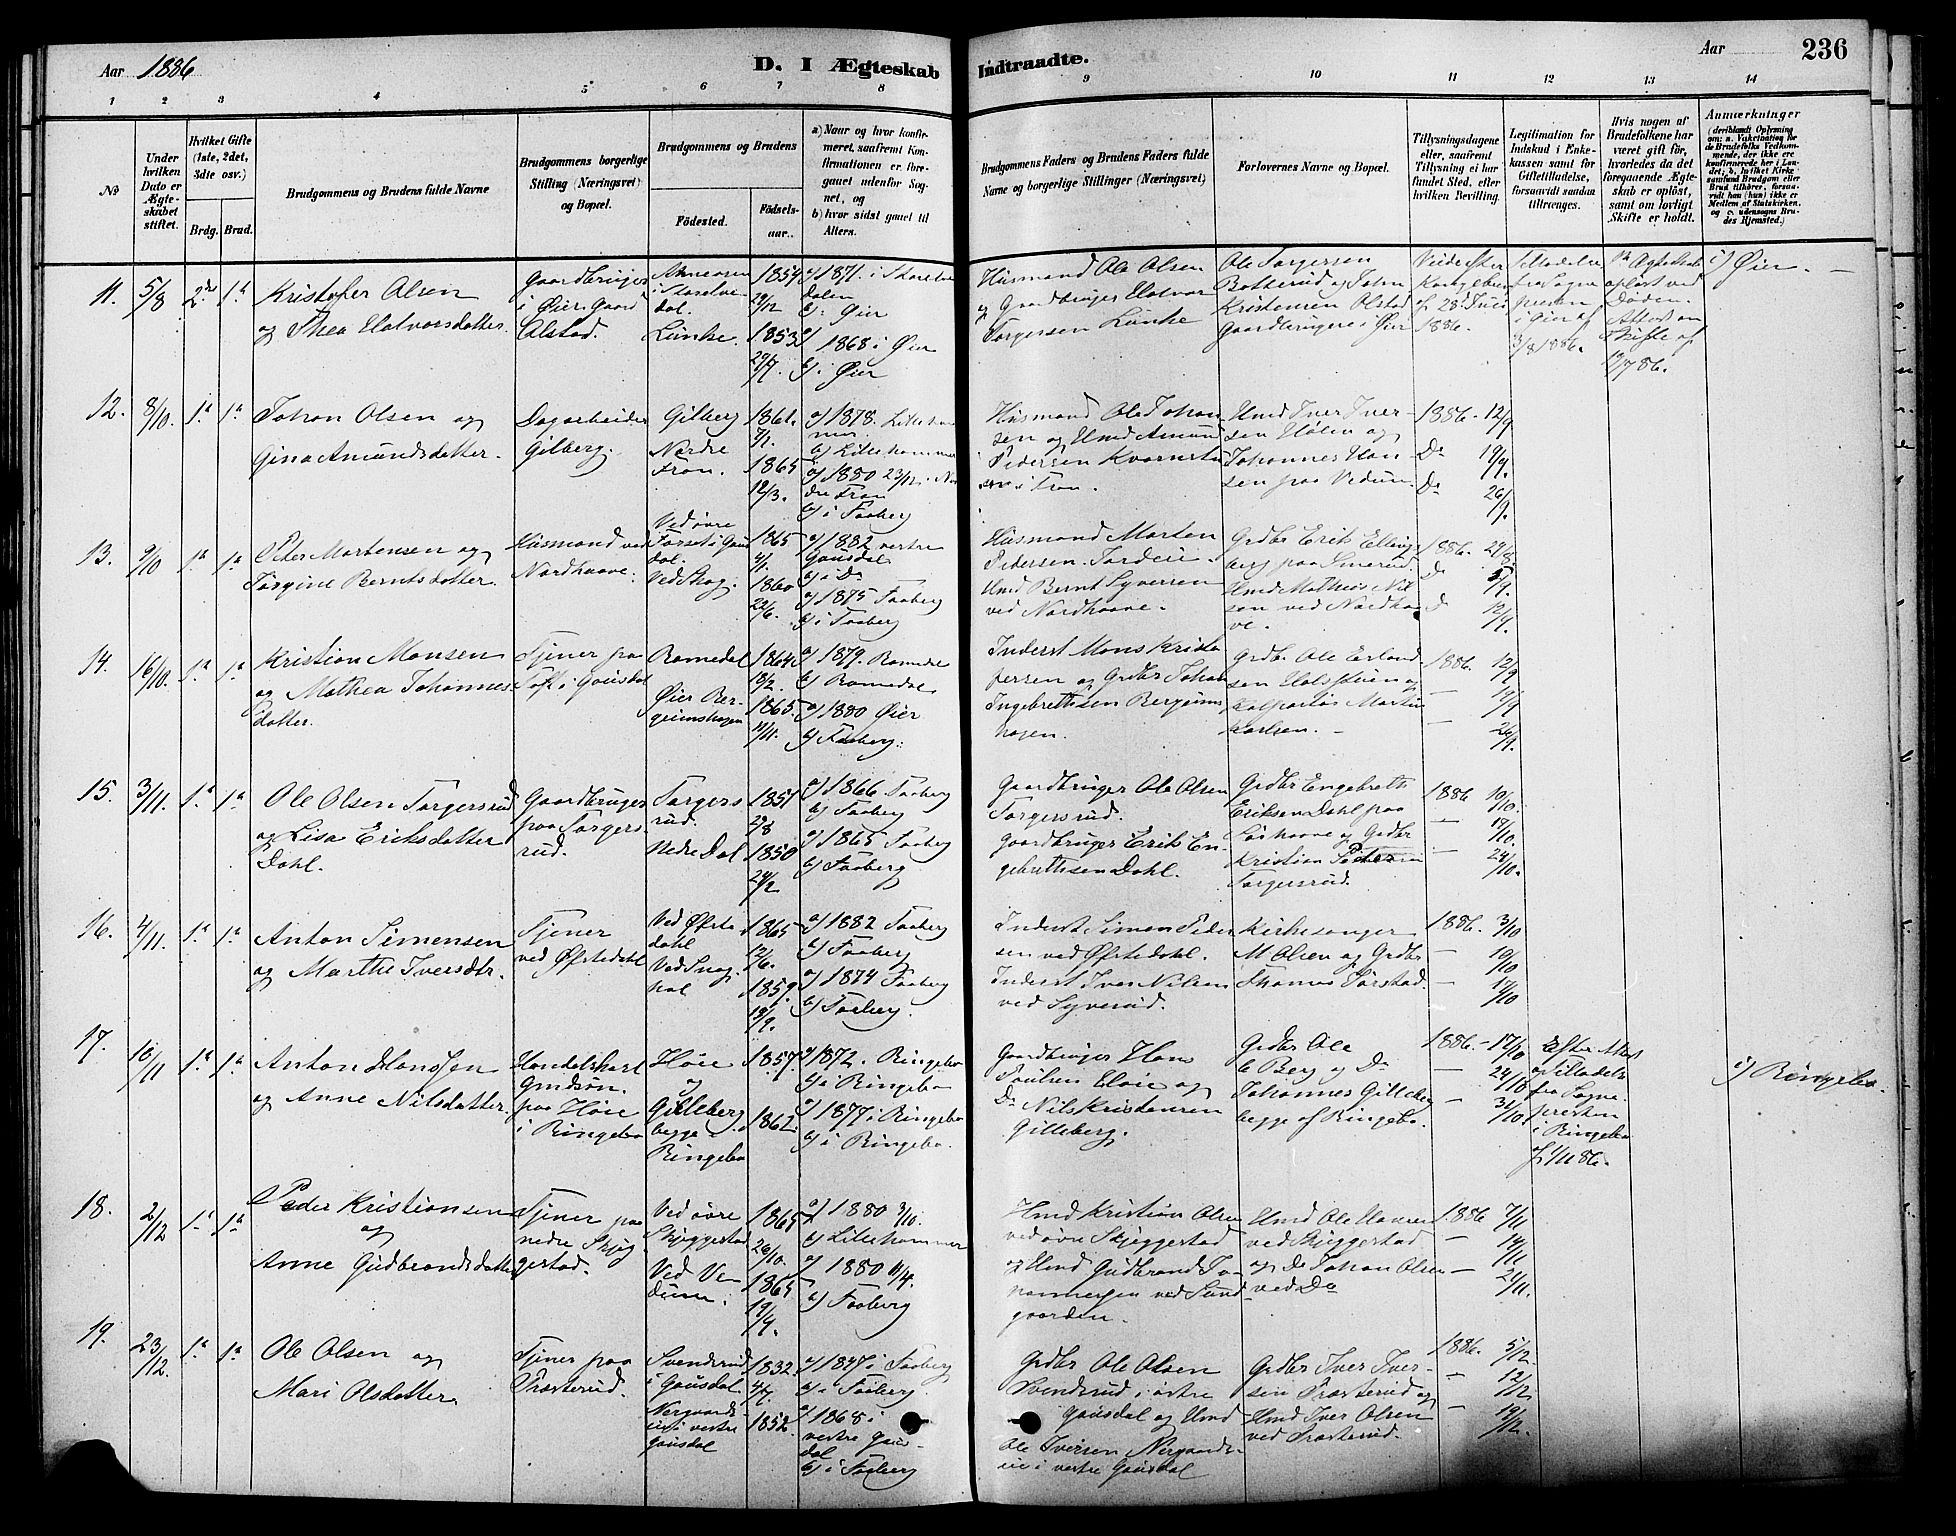 Aar 1886
D. I Ægteskab
Indtraadte.
Aar
236
1 2 3 4 5 6 7 8 9 10 11 12 13 14
No
Under hvilken Dato er Ægteskabet stiftet.
Hvilket Gifte (1ste, 2det, 3die osv.)
Brdg. Brud.
Brudgommens og Brudens fulde Navne
Brudgommens borgerlige Stilling (Næringsvei) og Bopæl.
Brudgommens og Brudens
Födested.
Födselsaar.
a) Naar og hvor konfirmeret, saafremt Konfirmationen er foregaaet udenfor Sognet, og
b) hvor sidst gaaet til Alters.
Brudgommens Faders og Brudens Faders fulde Navne og borgerlige Stillinger (Næringsvei)
Forlovernes Navne og Bopæl.
Tillysningsdagene eller, saafremt Tillysning ei har fundet Sted, efter hvilken Bevilling.
Legitimation for Indskud i Enkekassen samt for Giftetilladelse, forsaavidt saadan tiltrænges.
Hvis nogen af Brudefolkene har været gift før, hvorledes da det foregaaende Ægteskab er oplöst, samt om lovligt Skifte er holdt.
Anmærkninger
11. 5/8 2det 1ste
Kristofer Olsen
og Thea Halvorsdatter.
Gaardbruger
i Øier Gaard
Olstad.
Lunke.
1853
a) 1868 i Øier
b) i Øier
Husmand Ole Olsen
og Gaardbruger Halvor
Torgersen Lunke
Ole Torgersen
Botterud og John
Kristensen Olstad
Gaardbrugere i Øier
1886.
3/8 1886.
Døden.
Skifte af
12/7 86.
c) Øier.
12. 8/10. 1ste 1ste
Johan Olsen og
Gina Amundsdatter.
Dagarbeider
Gilberg.
Gilberg
Nordre
Fron.
1861.
7/1.
1865
12/3.
a) 1878. Lillehammer
b) Lillehammer
a) 1880 23/12 i Nordre Fron
b) i Faaberg
Husmand Ole Johansen og Hmd Amund
Pedersen
i Fron.
Hmd Iver Iversen Holen og
Johannes Hansen paa Vedum.
1886. 12/9
Do 19/9.
Do 26/9.
13. 9/10 1ste 1ste
Peter Mortensen og
Torgine Berntsdatter.
Husmand ved
Nordhaave.
Ved øvre
Forset i Gausdal.
Ved Skog.
1865
4/1.
1860
22/6.
a) 1882 vestre
Gausdal
b) i Do
a) 1875 Faaberg
b) i Faaberg
Husmand Morten
Pedersen
Hmd Bernt Syversen
ved Nordhaave.
Grdbr Erik Ellingsberg paa Smerud
Hmd Mathias Nilsen ved Nordhaave.
1886. 29/8.
Do 5/9.
Do 12/9.
14. 16/10. 1ste 1ste
Kristian Monsen
og Mathea Johannesdatter.
Tjener paa
Toft i Gausdal
Romedal
Øier Bergeimshagen
1864
13/2.
1865.
11/11.
a) 1879. Romedal
b) Romedal
a) 1880 Øier
b) Faaberg.
Inderst Mons Kristofersen og Grdbr Johan
Ingebrettsen Bergeimshagen.
Grdbr. Ole Erlandsen Holsteien og
Kolportør Martin
Karlsen.
1886. 12/9
19/9
26/9.
15. 3/11. 1ste 1ste
Ole Olsen Torgersrud
og Lisa Eriksdatter
Dahl.
Gaardbruger
paa Torgersrud.
Torgersrud.
Nedre Dal
1851
29/8
1850
24/2
a) 1866 Faaberg
b) Faaberg
a) 1865 Faaberg
b) Faaberg
Gaardbruger Ole Olsen
Torgersrud.
Gaardbruger Erik Engebrettsen Dahl.
Grdbr Engebrett
Eriksen Dahl paa
og Grdbr
Kristian Petersen
Torgersrud.
1886 10/10.
17/10.
24/10.
16. 4/11. 1ste 1ste
Anton Simensen
og Marthe Iversdtr.
Tjener
ved Øfstedahl
Ved Øfstedahl
1865
12/6.
1859.
13/9.
a) 1882 Faaberg
b) Faaberg
a) 1874 Faaberg
b) Faaberg.
Inderst Simen Pedersen ved Øfstedahl.
Inderst Iver Nilsen
ved Syverud.
Kirkesanger
M Olsen og Grdbr
Thomas Jørstad.
1886. 3/10
10/10
17/10
17. 10/11 1ste 1ste
Anton Hanssen
og Anne Nilsdatter.
Handelskarl
paa Høie
i Ringebo
Høie
og
Gilleberg
begge i
Ringebo
1857.
1862.
a) 1872. Ringebo
b) i Ringebo
a) 1877 i Ringebo
b) i Ringebo.
Gaardbruger Hans
Paulsen Høie og
Do Nils Kristensen
Gilleberg.
Grdbr Ole
Berg og Do
Johannes Gilleberg
begge af Ringebo.
1886. 17/10
24/10
31/10.
Efter Attest
og Tilladelse
fra Sognepresten
i Ringebo
af 1/11 86.
c) Ringebo.
18. 2/12 1ste 1ste
Peder Kristiansen
og
Anne Gudbrandsdatter
Tjener paa
nedre Skjeggestad.
Ved øvre
Skjeggestad
Ved Vedum.
1865
26/10.
1865
19/4.
a) 1880 3/10.
b) Lillehammer
a) 1880 11/4.
b) Faaberg
Hmd Kristian Olsen
ved øvre Skjeggestad
og Hmd Gudbrand Johannesen ved Sundgaarden.
Hmd Ole Hansen
ved Skjeggestad
og Do Johan Olsen
ved Do
1886 7/11
14/11
21/11.
19. 23/12. 1ste 1ste
Ole Olsen og
Mari Olsdatter.
Tjener paa
Prosterud.
Svendsrud
i Gausdal.
i vestre
Gausdal
1832.
1852.
a) 1847 i Faaberg
b) i Faaberg.
a) 1868 i
vestre Gausdal
b) i Faaberg
Grdbr Ole Olsen
Svendsrud i østre
Gausdal og Hmd
Ole Iversen
i vestre Gausdal
Grdbr Iver Iversen Prosterud og
Hmd Iver Olsen
ved Prosterud.
1886. 5/12.
12/12
19/12.